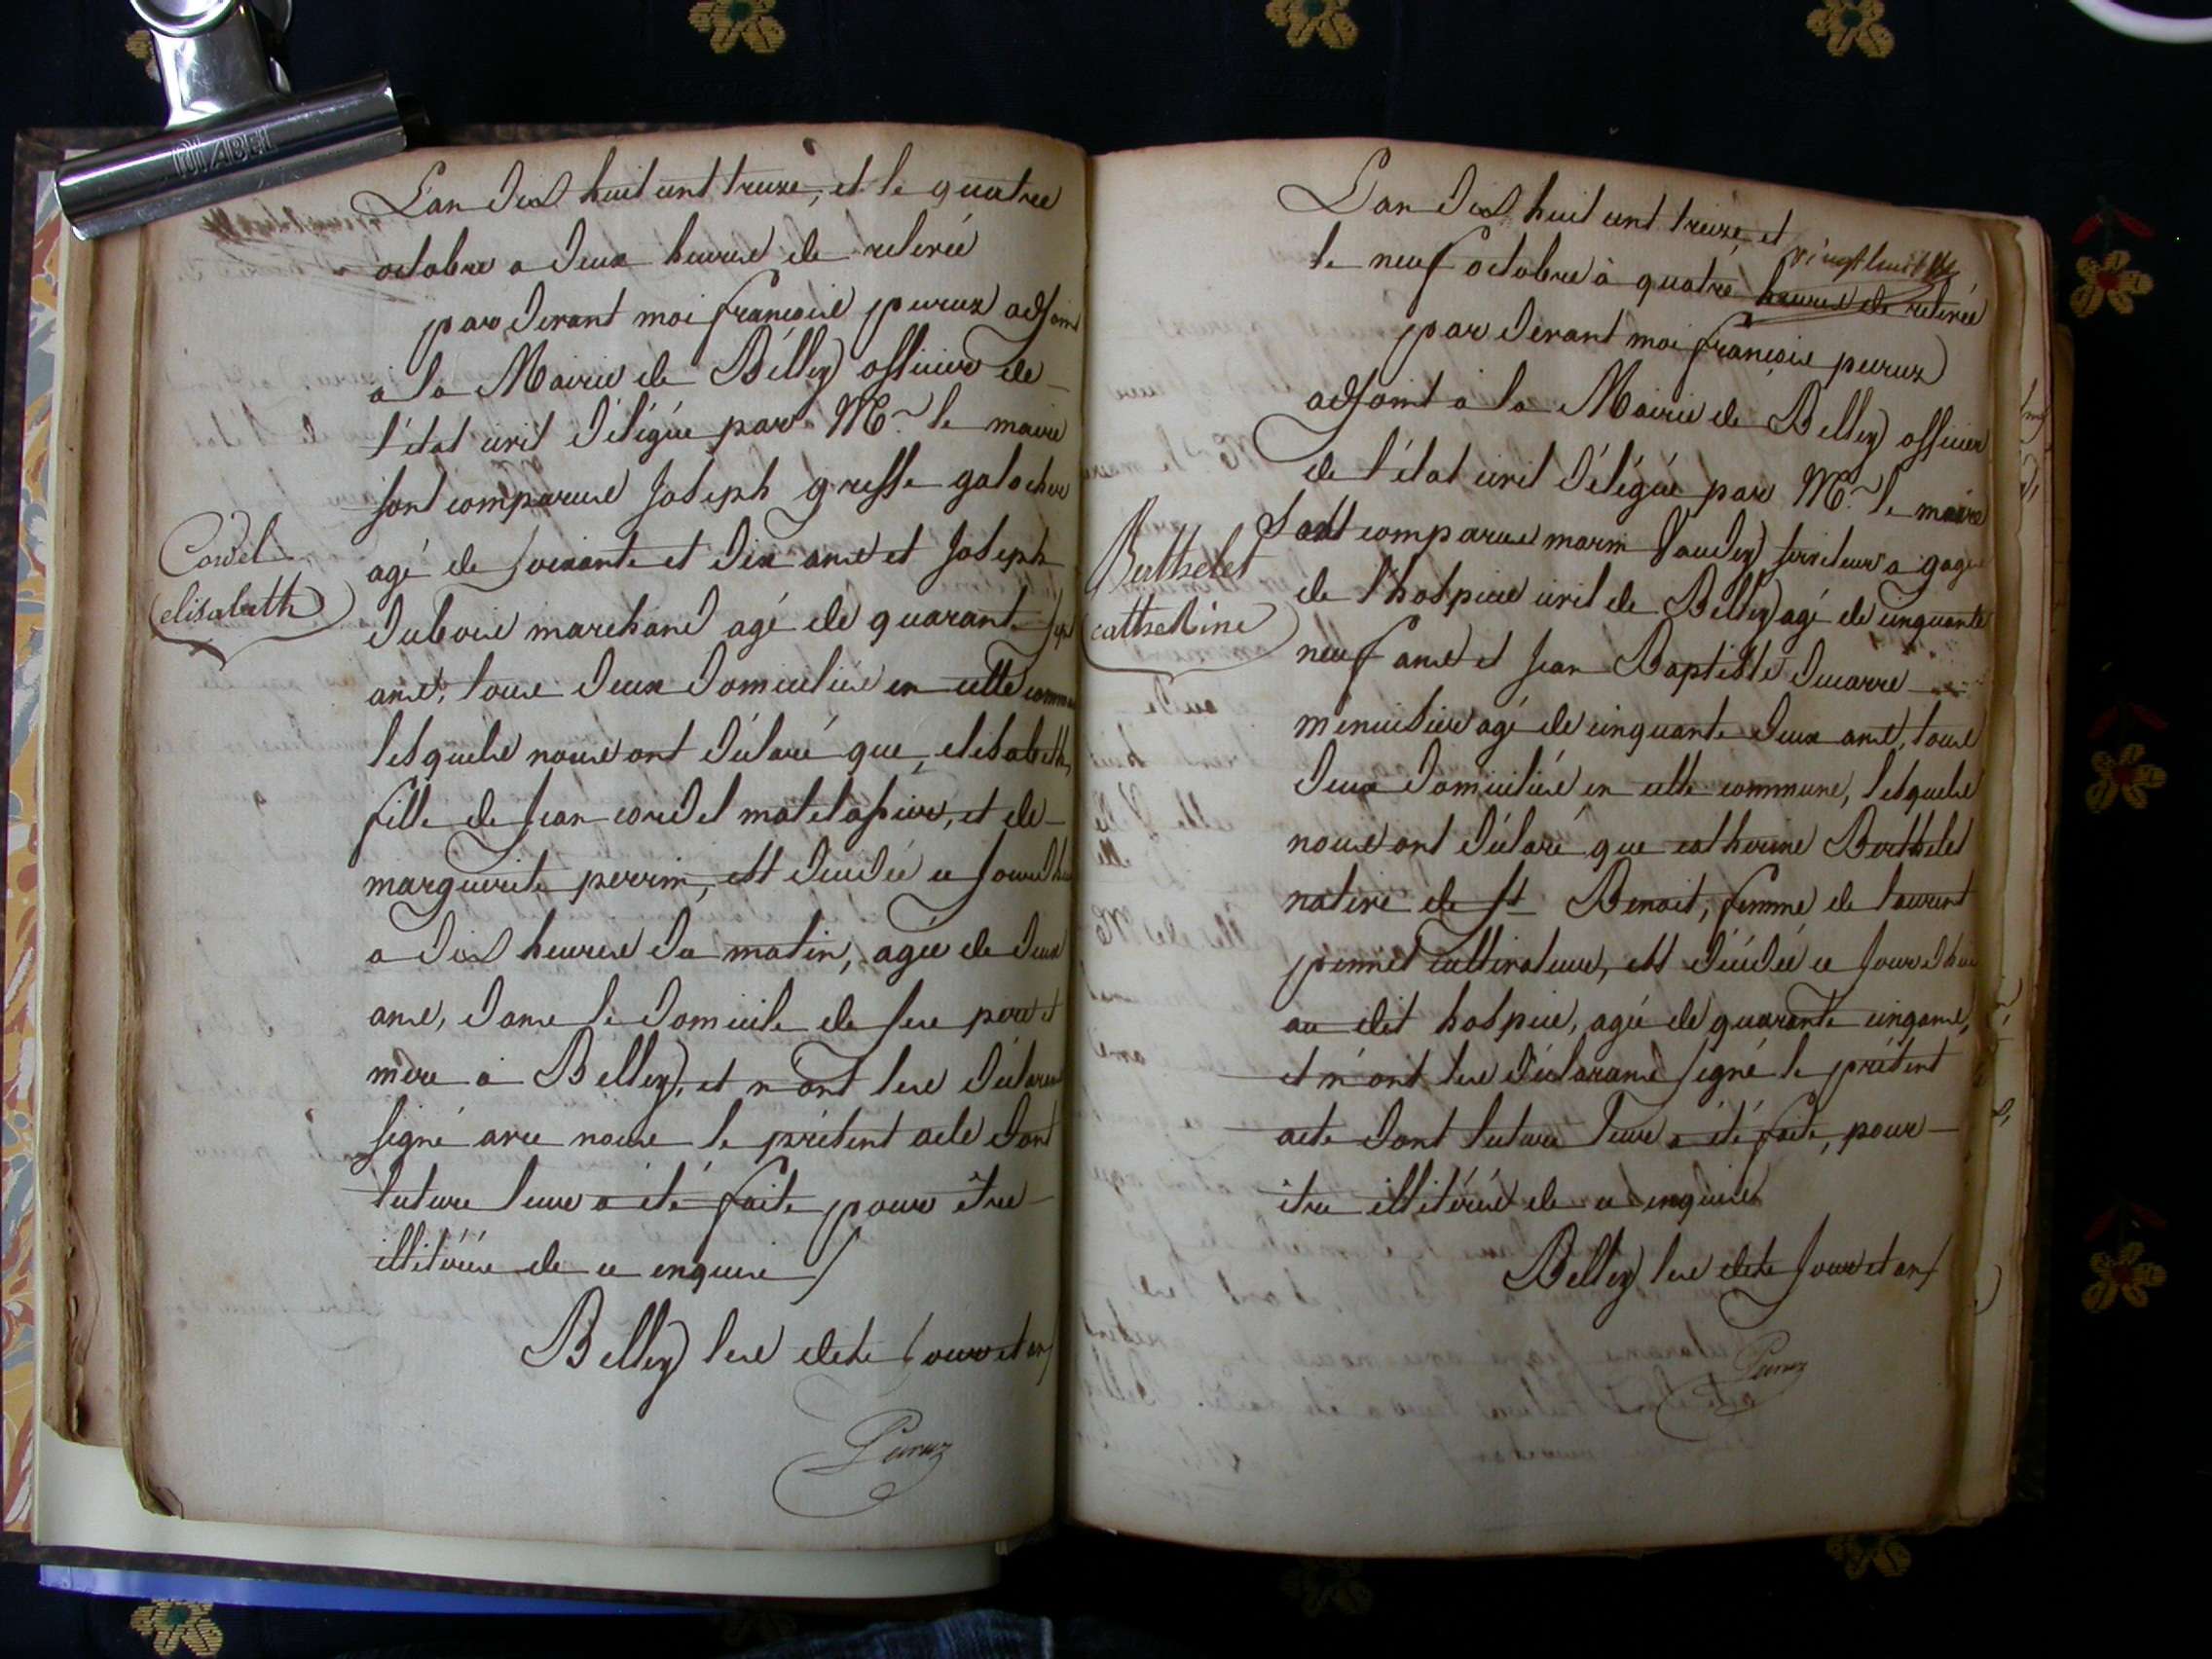 NIABEL
L'an dix huit cent treize, et le quatre
octobre a deux heures de relevée
par devant moi françois peruz adjoint
à la Mairie de Belley officier de
l'état civil délégué par Mr. le maire
sont comparus Joseph greffe galocher
agé de soixante et dix ans et Joseph
dubois marchand agé de quarante sept
ans, tous deux domiciliés en cette commune
lesquels nous ont déclaré que, elisabeth,
fille de Jean cordel matelassier, et de
marguerite perrin, est decedée ce jourdhui
a dix heures du matin, agée de deux
ans, dans le domicile de ses pere et
mère à Belley, et n'ont les déclarans
signé avec nous le présent acte dont
lecture leur a été faite pour être
illitérés de ce enquis /
Belley les dits jour et an /
Peruz
Cordel
elisabeth
L'an dix huit cent treize, et
vingt huit
le neuf octobre à quatre heures de relevée
par devant moi françois peruz
adjoint à la Mairie de Belley officier
de l'état civil délégué par Mr. le maire
Sont comparus marin Vaudey serviteur a gages
de l'hospice civil de Belley agé de cinquante
neuf ans et Jean Baptiste ducarre
menuisier agé de cinquante deux ans, tous
deux domiciliés en cette commune, lesquels
nous ont déclaré que catherine Berthelet
native de st Benoit, femme de laurent
pinnet cultivateur, est décédée ce jourdhui
au dit hospice, agée de quarante cinq ans,
et n'ont les déclarans signé le présent
acte dont lecture leur a été faite, pour
être illitérés de ce enquis
Belley les dits jour et an /
Peruz
Berthelet
catherine